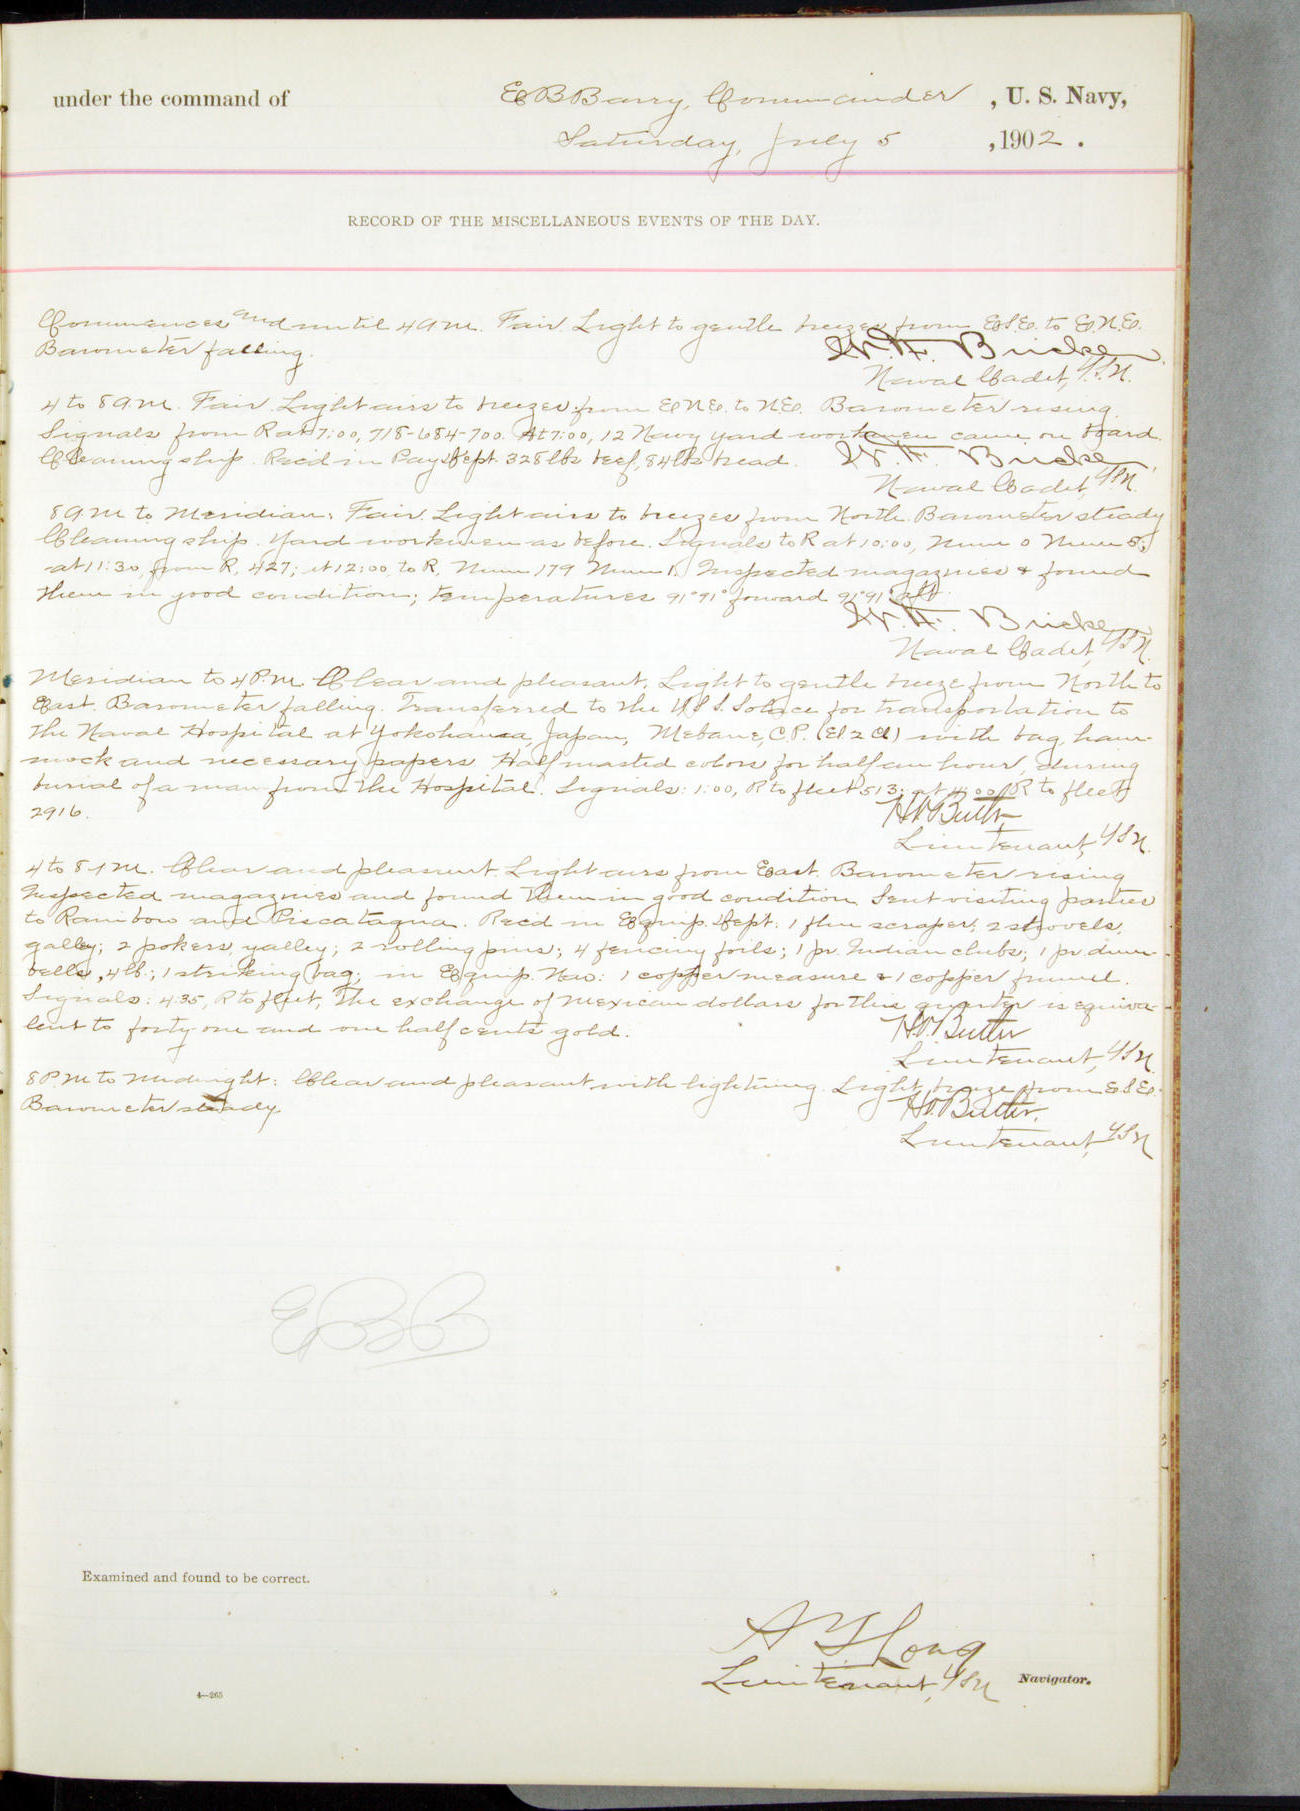 under the command of E B Barry, Commander , U. S. Navy,
Saturday, July 5 , 1902 .
RECORD OF THE MISCELLANEOUS EVENTS OF THE DAY.
Commences and until 4 a.m. Fair. Light to gentle breezes from E.S.E. to E.N.E.
Barometer falling.
W. F. Bricker
Naval Cadet, U.S.N.
4 to 8 a.m. Fair. Light airs to breezes from E.N.E. to N.E. Barometer rising.
Signals from R at 7:00, 718-684-700. At 7:00, 12 Navy yard workmen came on board.
Cleaning ship. Rec'd in Pay Dept. 328 lbs beef, 84 lbs bread.
W. F. Bricker,
Naval Cadet, U.S.N.
8 a.m. to Meridian: Fair. Light airs to breezes from North. Barometer steady
Cleaning ship. Yard workmen as before. Signals to R at 10:00, Num 0 Num 5;
at 11:30, from R, 427; at 12:00, to R, Num 179 Num 1. Inspected magazines & found
them in good condition; temperatures 91° 91° forward 91° 91° aft.
W. F. Bricker
Naval Cadet, U.S.N.
Meridian to 4 P.m. Clear and pleasant. Light to gentle breeze from North to
East. Barometer falling. Transferred to the U.S.S. Solace for transportation to
the Naval Hospital at Yokohama, Japan, Mebane, C.P. (El 2 Cl) with bag, ham-
mock and necessary papers. Half masted colors for half an hour, during
burial of a man from the Hospital. Signals: 1:00, R to fleet 513; at 4:00, R to fleet
2916.
H.V. Butler
Lieutenant, U.S.N.
4 to 8 P.m. Clear and pleasant. Light airs from East. Barometer rising
Inspected magazines and found them in good condition. Sent visiting parties
to Rainbow and Piscataqua. Rec'd in Equip. Dept: 1 flue scraper; 2 shovels,
galley; 2 pokers, galley; 2 rolling pins; 4 fencing foils; 1 pr. Indian clubs; 1 pr dum-
bells, 4 lb.; 1 striking bag; in Equip. Nav: 1 copper measure & 1 copper funnel.
Signals: 4:35, R to fleet, The exchange of Mexican dollars for this quarter is equiva-
lent to forty one and one half cents gold.
H.V. Butler
Lieutenant, U.S.N.
8 P.m to Midnight: Clear and pleasant with lightning. Light breeze from E.S.E.
Barometer steady
H.V. Butler.
Lieutenant, U.S.N
EBB
Examined and found to be correct.
A T Long
Lieutenant, U.S.N Navigator.
4—265